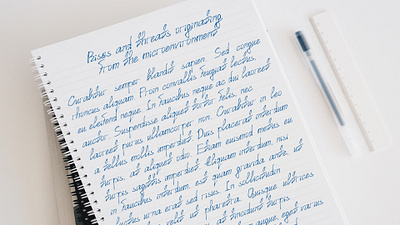 Risks and threats originating
from the microenvironment
Curabitur semper blandit sapien. Sed congue
rhoncus aliquam. Proin convallis feugiat lectus,
eu eleifend neque. In faucibus neque ac dui laoreet
auctor. Suspendisse aliquet tortor felis, nec
laoreet purus ullamcorper non. Curabitur in leo
a tellus mollis imperdiet. Duis placerat interdum
turpis, at aliquet odio. Etiam euismod metus eu
turpis sagittis imperdiet. Aliquam interdum, nisi
in faucibus interdum, est quam gravida ante, ut
luctus urna erat sed risus. In sollicitudin
velit ut pharetra. Quisque ultrices
at tincidunt turpis
augue, eget varius